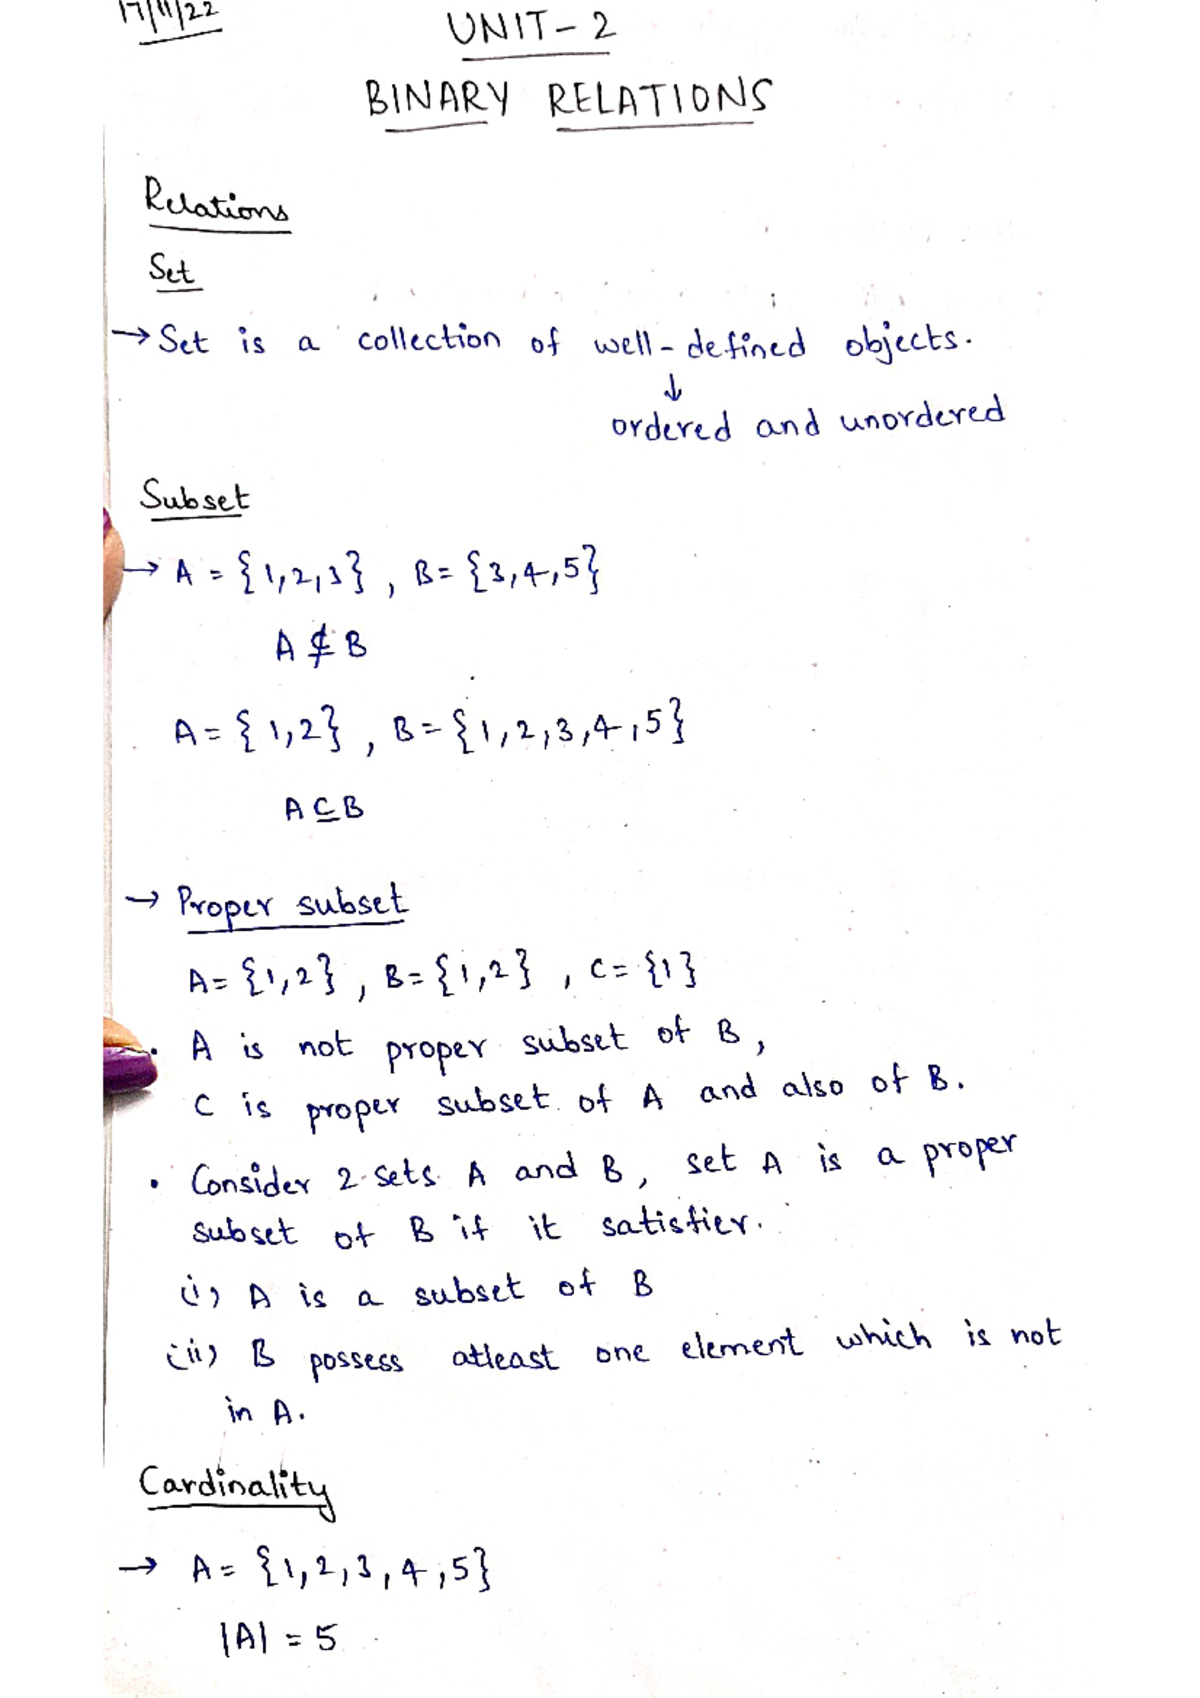 17/11/22
UNIT-2
BINARY RELATIONS
Relations
Set
→ Set is a collection of well-defined objects.
↓
ordered and unordered
Subset
→ A = {1,2,3}, B = {3,4,5}
A ⊈ B
A = {1,2}, B = {1,2,3,4,5}
A ⊆ B
→ Proper subset
A = {1,2}, B = {1,2}, C = {1}
• A is not proper subset of B,
C is proper subset of A and also of B.
• Consider 2 sets A and B, set A is a proper
subset of B if it satisfier.
(i) A is a subset of B
(ii) B possess atleast one element which is not
in A.
Cardinality
→ A = {1,2,3,4,5}
|A| = 5